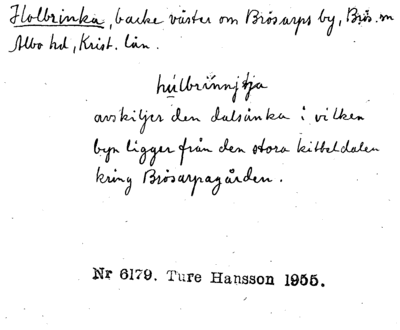 Holbrinka, backe väster om Brösarps by, Brös. sn
Albo hd, Krist. län.
húlbrìnnjtja
avskiljer den dalsänka i vilken
byn ligger från den stora kitteldalen
kring Brösarpagården.
Nr 6179. Ture Hansson 1955.